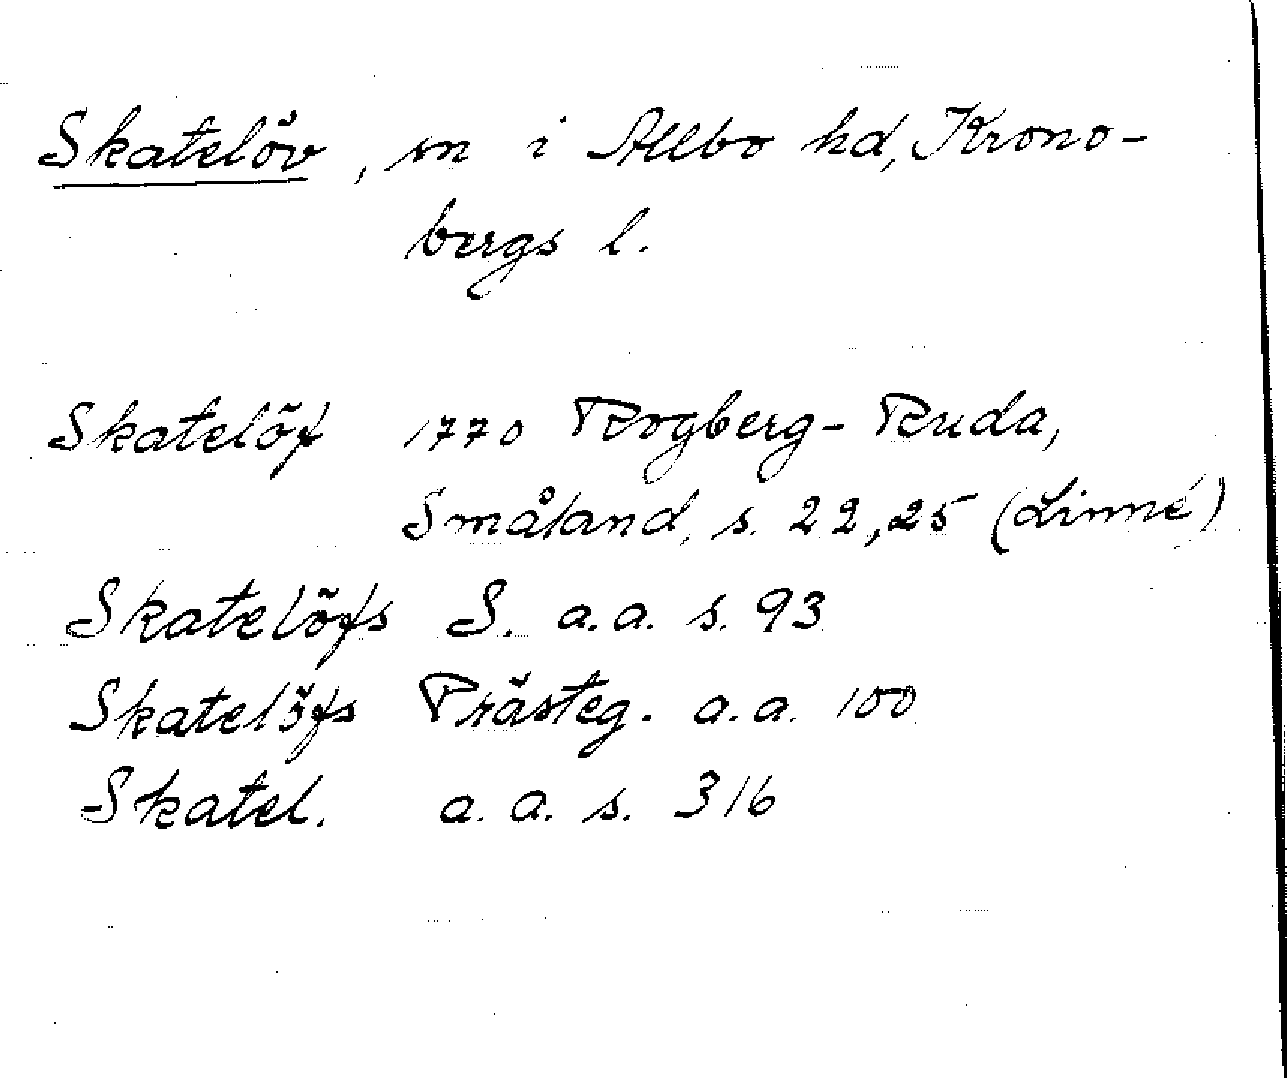 Skatelöv, sn i Allbo hd, Krono-
bergs l.
Skatelöf 1770 Rogberg-Ruda,
Småland, s. 22,25 (Linné)
Skatelöfs S. a.a. s. 93
Skatelöfs Prästeg. a.a. 100
Skatel. a.a. s. 316